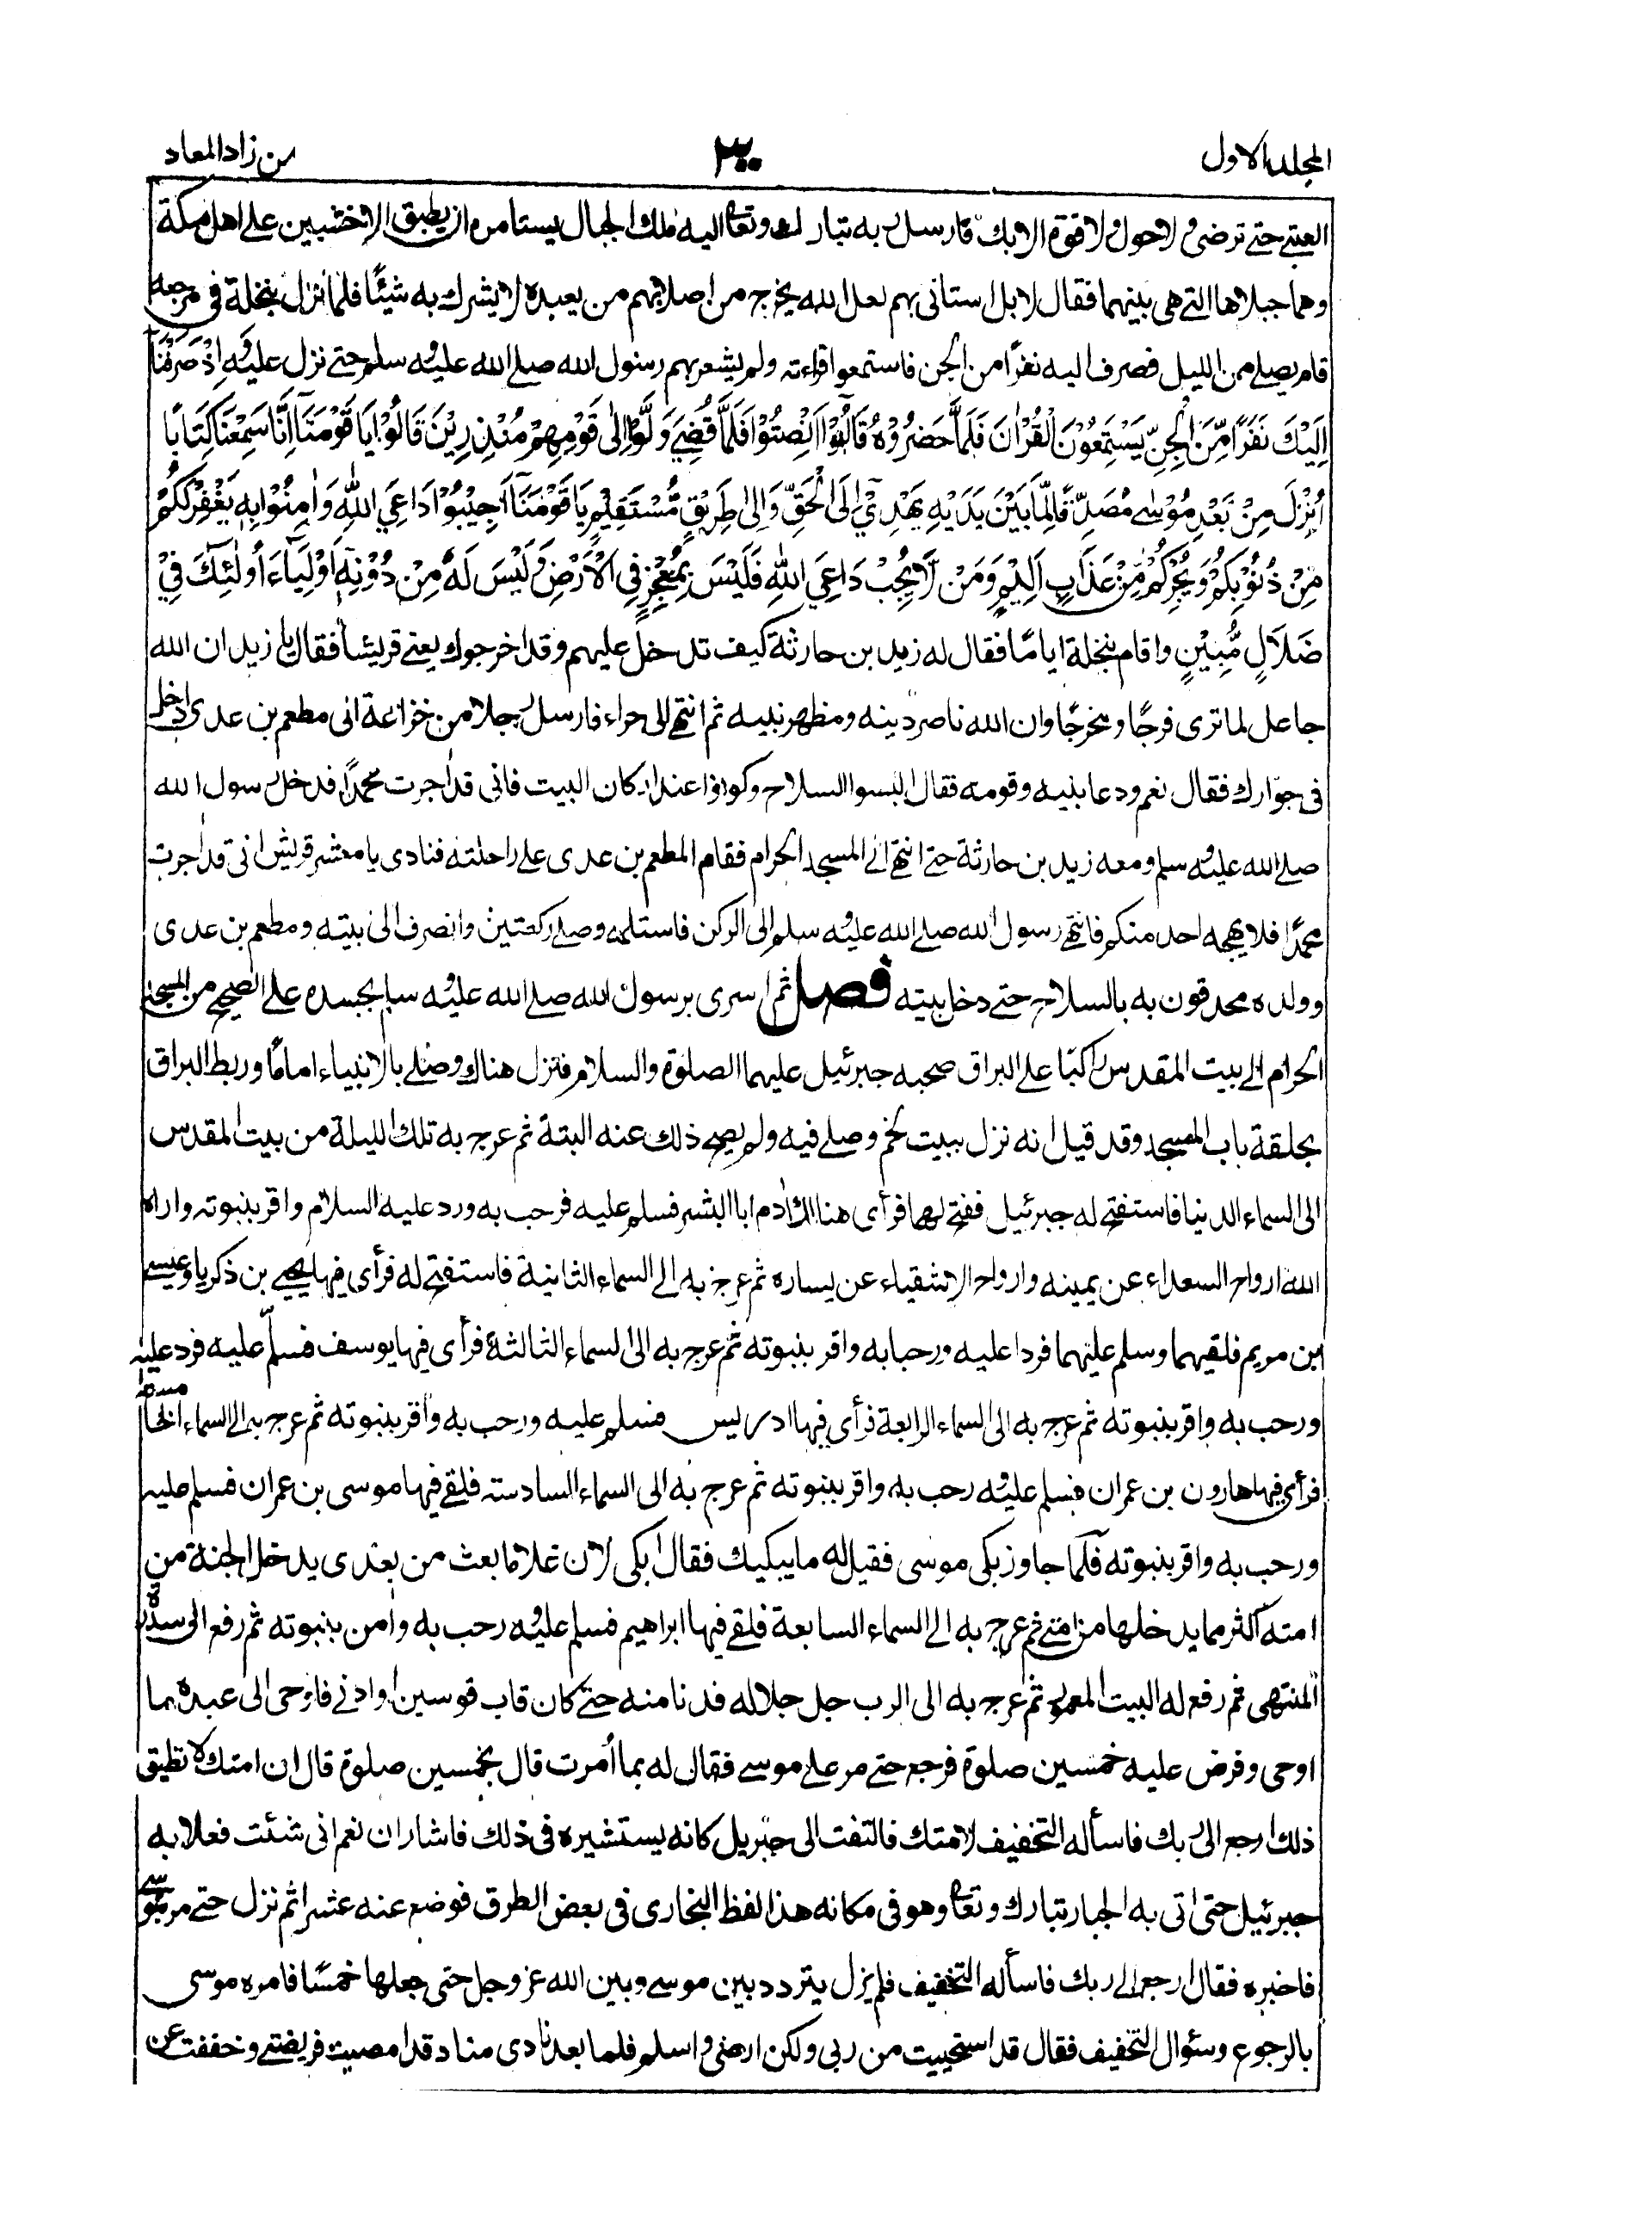 المجلد الاول ٣٠٠ من زاد المعاد
العتبى حتے ترضى ولا حول ولا قوة الا بك فارسل ربه تبارك وتعالى اليه ملك الجبال يستامره ان يطبق الاخشبين على اهل مكة
وهما جبلاها التے هى بينهما فقال لا بل استانى بهم لعل الله يخرج من اصلابهم من يعبده لا يشرك به شيئًا فلما نزل بنخلة فى مرجعه
قام يصلے من الليل فصرف اليه نفرًا من الجن فاستمعوا قراءته ولم يشعر بهم رسول الله صلے الله عليه وسلم حتے نزل عليه وَاِذْ صَرَفْنَآ
اِلَيْكَ نَفَرًا مِّنَ الْجِنِّ يَسْتَمِعُوْنَ الْقُرْاٰنَ فَلَمَّا حَضَرُوْهُ قَالُوْا اَنْصِتُوْا فَلَمَّا قُضِيَ وَلَّوْا اِلٰى قَوْمِهِمْ مُنْذِرِيْنَ قَالُوْا يَا قَوْمَنَآ اِنَّا سَمِعْنَا كِتَابًا
اُنْزِلَ مِنْ بَعْدِ مُوْسٰى مُصَدِّقًا لِّمَا بَيْنَ يَدَيْهِ يَهْدِيْٓ اِلَى الْحَقِّ وَاِلٰى طَرِيْقٍ مُّسْتَقِيْمٍ يَا قَوْمَنَآ اَجِيْبُوْا دَاعِيَ اللّٰهِ وَاٰمِنُوْا بِهٖ يَغْفِرْ لَكُمْ
مِّنْ ذُنُوْبِكُمْ وَيُجِرْكُمْ مِّنْ عَذَابٍ اَلِيْمٍ وَمَنْ لَّا يُجِبْ دَاعِيَ اللّٰهِ فَلَيْسَ بِمُعْجِزٍ فِي الْاَرْضِ وَلَيْسَ لَهٗ مِنْ دُوْنِهٖٓ اَوْلِيَآءَ اُولٰٓئِكَ فِيْ
ضَلَالٍ مُّبِيْنٍ واقام بنخلة اياما فقال له زيد بن حارثة كيف تدخل عليهم وقد اخرجوك يعنے قريشا فقال يا زيد ان الله
جاعل لما ترى فرجًا ومخرجًا وان الله ناصر دينه ومظهر نبيه ثم انتهى الى حراء فارسل رجلا من خزاعة الى مطعم بن عدى ادخل
فى جوارك فقال نعم ودعا بنيه وقومه فقال البسوا السلاح وكونوا عند اركان البيت فانى قد اجرت محمدًا فدخل رسول الله
صلے الله عليه وسلم ومعه زيد بن حارثة حتے انتهى الے المسجد الحرام فقام المطعم بن عدى علے راحلته فنادى يا معشر قريش انى قد اجرت
محمدًا فلا يهجه احد منكم فانتهى رسول الله صلے الله عليه وسلم الى الركن فاستلمه وصلے ركعتين وانصرف الى بيته ومطعم بن عدى
وولده محدقون به بالسلاح حتے دخل بيته فصل ثم اسرى برسول الله صلے الله عليه وسلم بجسده على الصحيح من المسجد
الحرام الے بيت المقدس راكبًا على البراق صحبه جبرئيل عليهما الصلوة والسلام فنزل هناك وصلے بالانبياء اماما وربط البراق
بحلقة باب المسجد وقد قيل انه نزل ببيت لحم وصلے فيه ولم يصح ذلك عنه البتة ثم عرج به تلك الليلة من بيت المقدس
الى السماء الدنيا فاستفتح له جبرئيل ففتح لهما فرأى هنالك اٰدم ابا البشر فسلم عليه فرحب به ورد عليه السلام واقر بنبوته واراه
الله ارواح السعداء عن يمينه وارواح الاشقياء عن يساره ثم عرج به الے السماء الثانية فاستفتح له فرأى فيها يحيے بن ذكريا وعيسے
ابن مريم فلقيهما وسلم عليهما فردا عليه ورحبا به واقر بنبوته ثم عرج به الى السماء الثالثة فرأى فيها يوسف فسلّم عليه فرد عليه
ورحب به واقر بنبوته ثم عرج به الى السماء الرابعة فرأى فيها ادريس فسلم عليه ورحب به واقر بنبوته ثم عرج به الے السماء الخامسة
فرأى فيها هارون بن عمران فسلم عليه ورحب به واقر بنبوته ثم عرج به الى السماء السادسة فلقے فيها موسى بن عمران فسلم عليه
ورحب به واقر بنبوته فلما جاوز بكى موسى فقيل له ما يبكيك فقال ابكى لان غلاما بعث من بعدى يدخل الجنة من
امته اكثر مما يدخلها من امتے ثم عرج به الے السماء السابعة فلقے فيها ابراهيم فسلم عليه ورحب به واٰمن بنبوته ثم رفع الى سدرة
المنتهى ثم رفع له البيت المعمور ثم عرج به الى الرب جل جلاله فدنا منه حتے كان قاب قوسين او ادنے فاوحى الى عبده ما
اوحى وفرض عليه خمسين صلوة فرجع حتے مر علے موسے فقال له بما أمرت قال بخمسين صلوة قال ان امتك لا تطيق
ذلك ارجع الى ربك فاسأله التخفيف لامتك فالتفت الى جبريل كانه يستشيره فى ذلك فاشار ان نعم انى شئت فعلا به
جبرئيل حتى اتى به الجبار تبارك وتعالى وهو فى مكانه هذا لفظ البخارى فى بعض الطرق فوضع عنه عشرا ثم نزل حتے مر بموسے
فاخبره فقال ارجع الے ربك فاسأله التخفيف فلم يزل يتردد بين موسے وبين الله عز وجل حتى جعلها خمسًا فامره موسى
بالرجوع وسئوال التخفيف فقال قد استحييت من ربى ولكن ارضى واسلم فلما بعد نادى مناد قد امضيت فريضتے وخففت عن